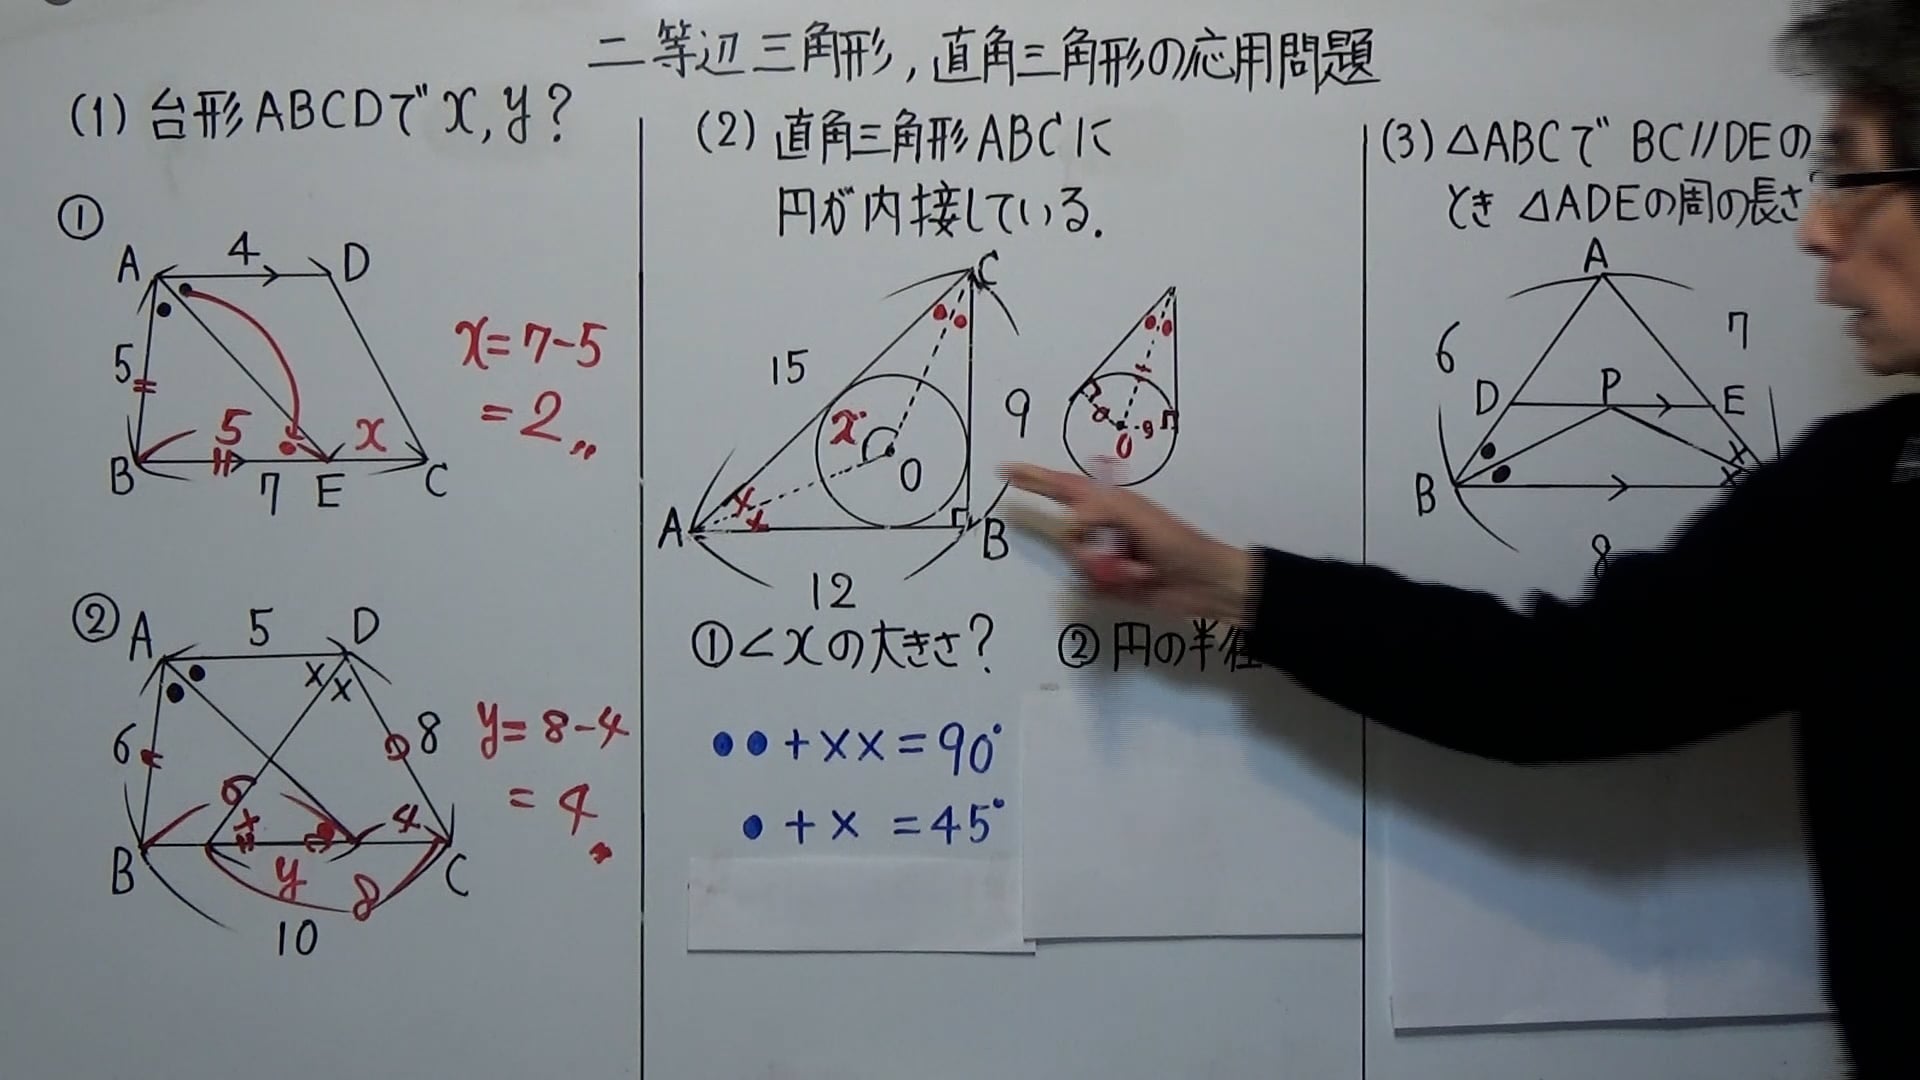 二等辺三角形,直角三角形の応用問題
(1) 台形ABCDで x, y?
①
A 4 D
5
5 x
B 7 E C
x=7-5
=2
②
A 5 D
x x
6 8
6 x 4
B y 8 C
10
y=8-4
=4
(2) 直角三角形ABCに
円が内接している.
C
15
9
x
O
x
x
A B
12
O
①∠xの大きさ? ②円の半径
●●+xx=90°
●+x =45°
(3) △ABCで BC//DEの
とき △ADEの周の長さ
A
6 7
D P E
x
x
B
8